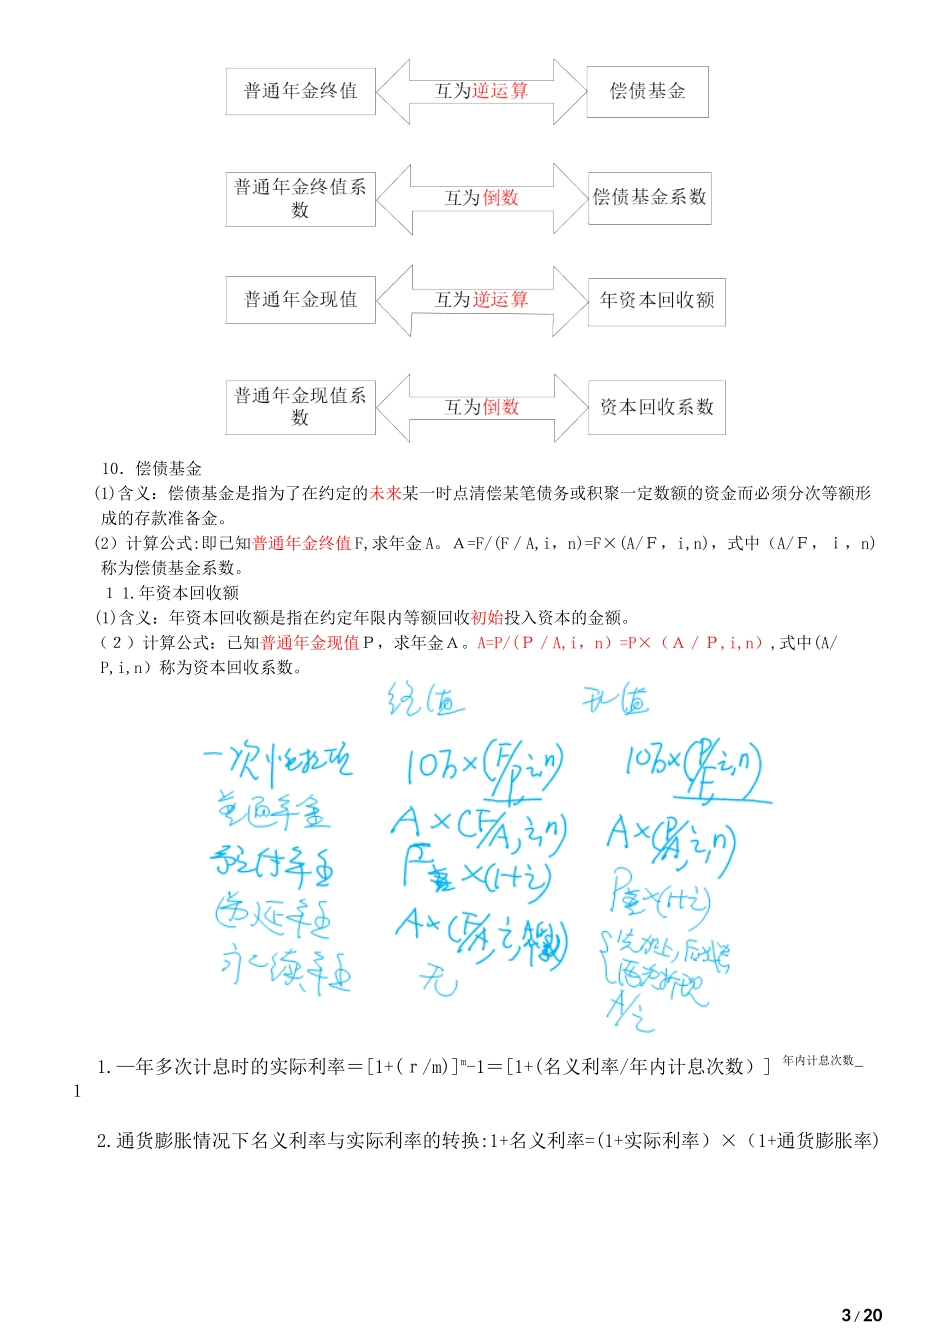 普通年金终值 互为逆运算 偿债基金
普通年金终值系
数
互为倒数 偿债基金系数
普通年金现值 互为逆运算 年资本回收额
普通年金现值系
数
互为倒数 资本回收系数
10．偿债基金
(1)含义：偿债基金是指为了在约定的未来某一时点清偿某笔债务或积聚一定数额的资金而必须分次等额形
成的存款准备金。
(2）计算公式:即已知普通年金终值 F,求年金 A。Ａ=F/(F／A,i，n)=F×(A/Ｆ，i,n)，式中（A/Ｆ，ｉ，n)
称为偿债基金系数。
１1.年资本回收额
(1)含义：年资本回收额是指在约定年限内等额回收初始投入资本的金额。
（２）计算公式：已知普通年金现值Ｐ，求年金Ａ。A=P/(Ｐ／A,i，n）=P×（Ａ／Ｐ,i,n）,式中(A/
P,i,n）称为资本回收系数。
终值 现值
一次性款项 10万×(F/P,i,n) 10万×(P/F,i,n)
普通年金 A×(F/A,i,n) A×(P/A,i,n)
预付年金 F普×(1+i) P普×(1+i)
递延年金 A×(F/A,i,A个数) 先加上,后减去
两次折现
永续年金 无 A/i
1.—年多次计息时的实际利率＝[1+(ｒ/m)]m-1＝[1+(名义利率/年内计息次数）] 年内计息次数-
1
2.通货膨胀情况下名义利率与实际利率的转换:1+名义利率=(1+实际利率）×（1+通货膨胀率)
3 / 20